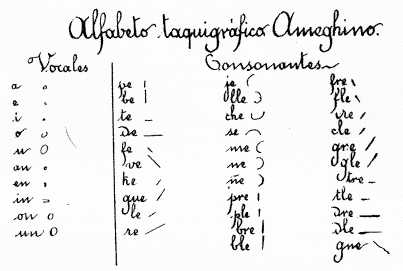 Alfabeto taquigráfico Ameghino.
Vocales
a
e
i
o
u
an
en
in
on
un
Consonantes
pe
be
te
De
fe
ve
ke
gue
le
re
je
lle
che
se
me
ne
ñe
pre
ple
bre
ble
fre
fle
cre
cle
gre
gle
tre
tle
Dre
Dle
gne